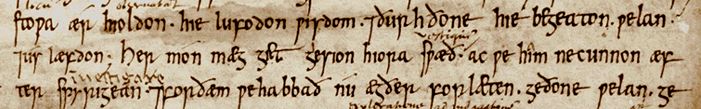 stoƿa ær hioldon · hie lufodon ƿisdom · ⁊ ðurh ðone hie begeaton · ƿelan ·
vestigium
⁊ us læfdon · Her mon mæg giet gesion hiora sƿæð · ac ƿe him ne cunnon æf
investigare
ter spyrigean · ⁊ forðæm ƿe habbað nu ægðer forlæten · ge ðone ƿelan · ge